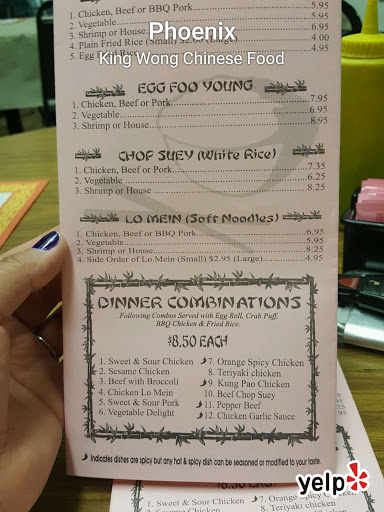 1. Chicken, Beef or BBQ Pork.................5.95
2. Vegetable.................4.95
3. Shrimp or House.................6.95
4. Plain Fried Rice (Small) $2.00 (Large).........4.00
5. Egg Fried Rice.................4.95
Phoenix
King Wong Chinese Food
EGG FOO YOUNG
1. Chicken, Beef or Pork.................7.95
2. Vegetable.................6.95
3. Shrimp or House.................8.95
CHOP SUEY (White Rice)
1. Chicken, Beef or Pork.................7.35
2. Vegetable.................6.25
3. Shrimp or House.................8.25
LO MEIN (Soft Noodles)
1. Chicken, Beef or BBQ Pork.................6.95
2. Vegetable.................5.95
3. Shrimp or House.................8.25
4. Side Order of Lo Mein (Small) $2.95 (Large).........4.95
DINNER COMBINATIONS
Following Combos Served with Egg Roll, Crab Puff,
BBQ Chicken & Fried Rice.
$8.50 EACH
1. Sweet & Sour Chicken
2. Sesame Chicken
3. Beef with Broccoli
4. Chicken Lo Mein
5. Sweet & Sour Pork
6. Vegetable Delight
7. Orange Spicy Chicken
8. Teriyaki chicken
9. Kung Pao Chicken
10. Beef Chop Suey
11. Pepper Beef
12. Chicken Garlic Sauce
Indicates dishes are spicy but any hot & spicy dish can be seasoned or modified to your taste.
$8.50 EACH
1. Sweet & Sour Chicken
2. Sesame Chicken
7. Orange Spicy Chicken
8. Teriyaki chicken
yelp